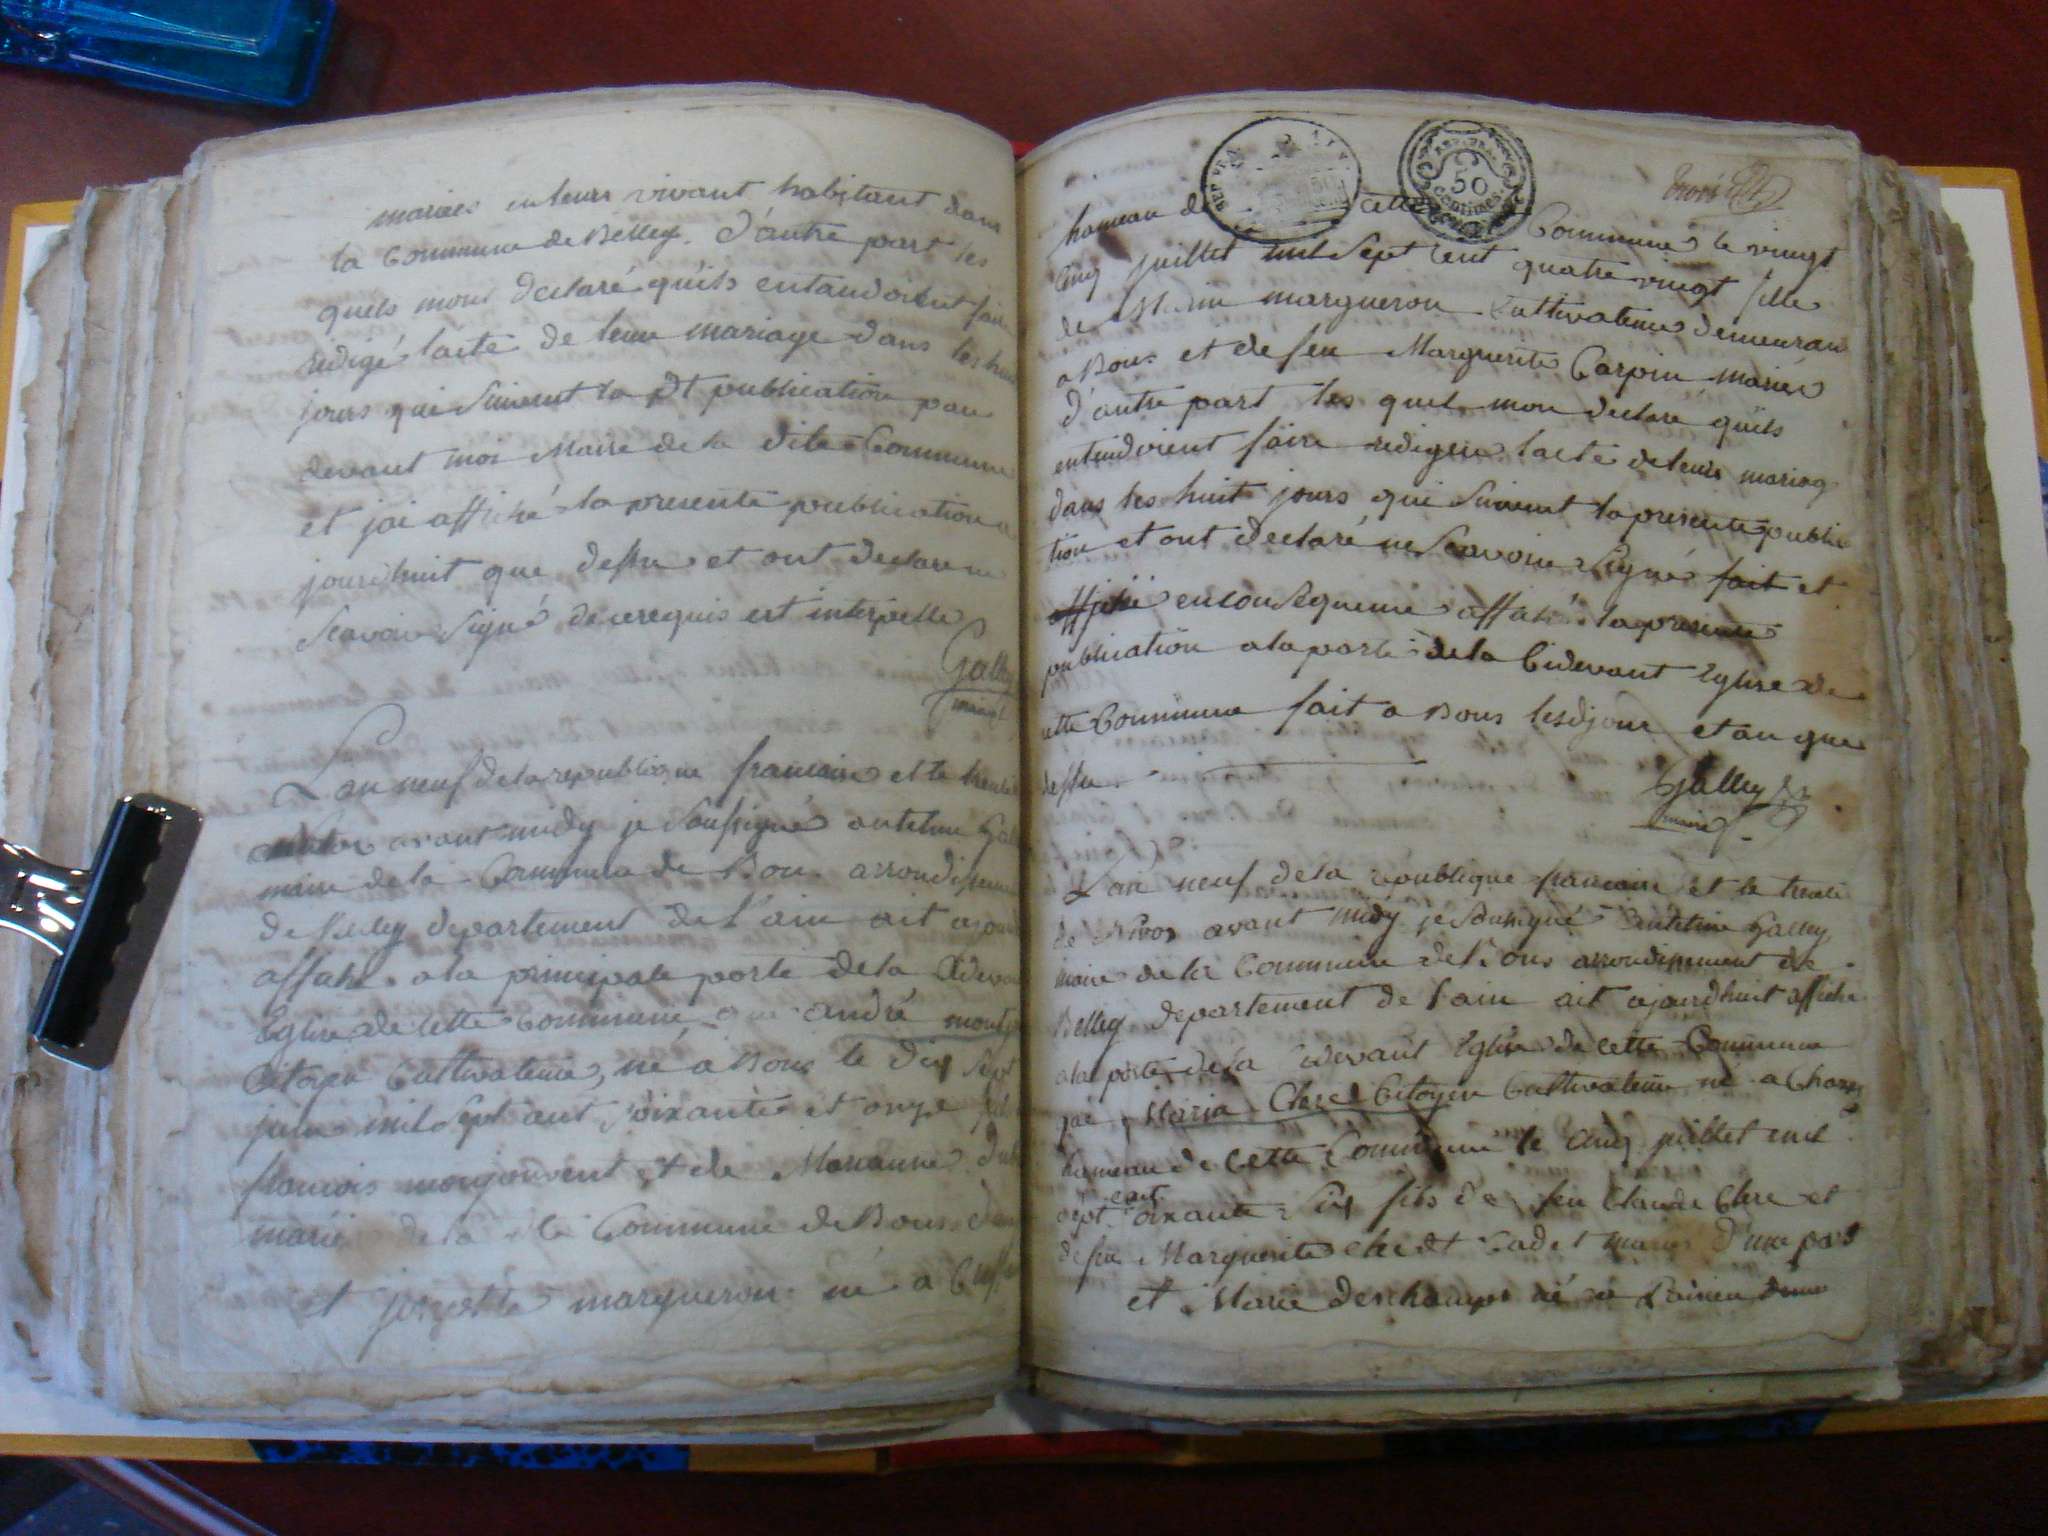 mariees en leurs vivant habitant dans
la Commune de Belley. d'autre part les
quels mont declaré quils entandoient faire
redigé lacte de leur mariage dans les huit
jours qui suivent la pt publication par
devant moi Maire de la dite Commune
et jai affiché la presente publication
jourdhuit que dessu et ont declare ne
Scavoir Signé de ce requis est interpelle
Galley
maire
Lan neuf de la republique francaise et le trente
avant midy je Soussigné antelme Gal
maire de la Commune de Bons arrondisseme
de Belley departement de l'ain ait ajour
affiché a la principale porte de la Cideva
Eglise de cette Commune que andré
Citoyen Cultivateur, né a Bons le dix Sept
juin mil Sept cent Soixante et onze fil
francois monjouvent et de Marianne
mariés de la dite Commune de Bons d'une
et josephte margueron né a
hameau de cette Commune le vingt
Cinq juillet mil Sept Cent quatre vingt fille
de margueron Cultivateur demeuran
a Bons et de feu Marguerite Carpin mariés
d'autre part les quel mon declaré quils
entendoient faire rediger lacte de leur mariag
dans les huit jours qui Suivent la presente public
tion et ont declaré ne Scavoir Signé fait et
affiché en consequence affiché la presente
publication a la porte de la Cidevant Eglise de
cette Commune fait a Bons lesdjour et an que
dessu
Galley
maire
Lan neuf de la republique francaise et le trente
de Nivos avant midy je Sousigné Antelme Galley
maire de la Commune de Bons arrondissement de
Belley departement de l'ain ait ajourdhuit affiché
a la porte de la Cidevant Eglise de cette Commune
que, Clerc Citoyen Cultivateur né a
hameau de cette Commune le Cinq juillet mil
cent
sept Soixante Six fils de feu Claude Clerc et
de feu Marguerite mariés d'une part
et Marie deschamps né a
50
Centimes